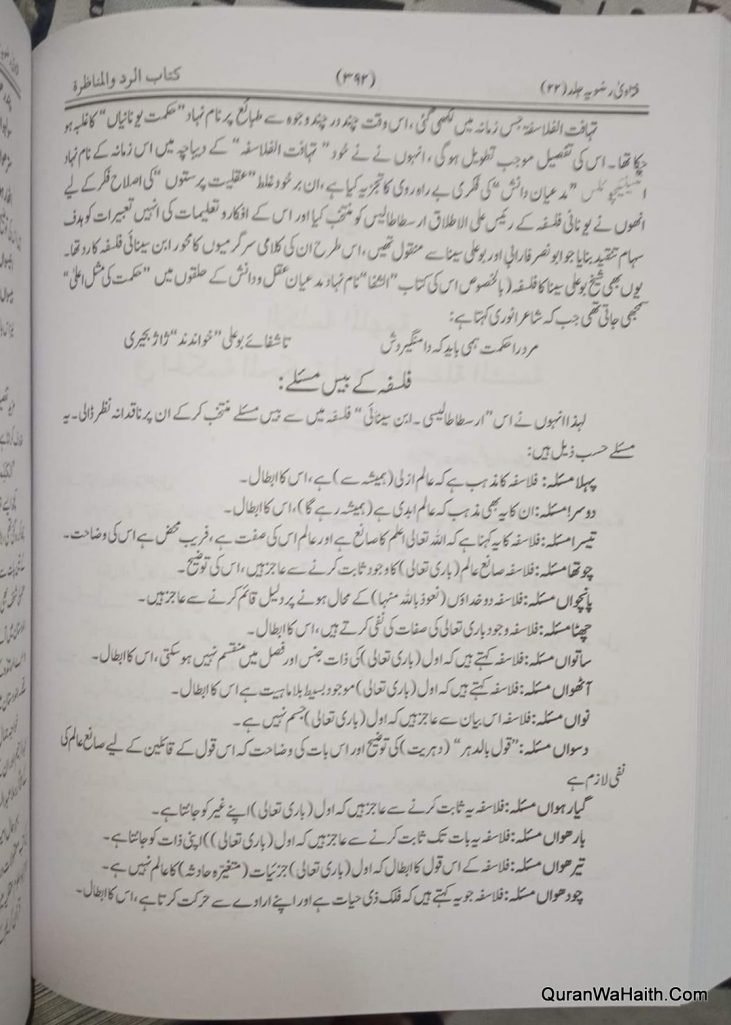 فتاویٰ رضویہ جلد (۲۲) (۳۹۲) کتاب الرد والمناظرۃ
تہافت الفلاسفۃ جس زمانہ میں لکھی گئی، اس وقت چند در چند وجوہ سے طبائع پر نام نہاد ”حکمت یونانیاں“ کا غلبہ ہو
چکا تھا۔ اس کی تفصیل موجب تطویل ہوگی، انہوں نے نے خود ”تہافت الفلاسفہ“ کے دیباچہ میں اس زمانہ کے نام نہاد
”مدعیان دانش“ کی فکری بے راہ روی کا تجزیہ کیا ہے، ان بر خود غلط ”عقلیت پرستوں“ کی اصلاح فکر کے لیے
انھوں نے یونانی فلسفہ کے رئیس علی الاطلاق ارسطاطالیس کو منتخب کیا اور اس کے افکار و تعلیمات کی انہیں تعبیرات کو ہدف
سہام تنقید بنایا جو ابو نصر فارابی اور بوعلی سینا سے منقول تھیں، اس طرح ان کی کلامی سرگرمیوں کا محور ابن سینائی فلسفہ کا رد تھا۔
یوں بھی شیخ بوعلی سینا کا فلسفہ (بالخصوص اس کی کتاب ”الشفا“ نام نہاد مدعیان عقل و دانش کے حلقوں میں ”حکمت کی مثل اعلیٰ“
سمجھی جاتی تھی جب کہ شاعر انوری کہتا ہے:
مرد را حکمت ہمی باید کہ دامنگیردش تا شفائے بوعلی ”خواندند“ ژاژ بحیری
فلسفہ کے بیس مسئلے:
لہذا انہوں نے اس ”ارسطاطالیسی۔ ابن سینائی“ فلسفہ میں سے بیس مسئلے منتخب کر کے ان پر ناقدانہ نظر ڈالی۔ یہ
مسئلے حسب ذیل ہیں:
پہلا مسئلہ: فلاسفہ کا مذہب ہے کہ عالم ازلی (ہمیشہ سے) ہے، اس کا ابطال۔
دوسرا مسئلہ: ان کا یہ بھی مذہب کہ عالم ابدی ہے (ہمیشہ رہے گا)، اس کا ابطال۔
تیسرا مسئلہ: فلاسفہ کا یہ کہنا ہے کہ اللہ تعالیٰ اعلم کا صانع ہے اور عالم اس کی صفت ہے، فریب محض ہے اس کی وضاحت۔
چوتھا مسئلہ: فلاسفہ صانع عالم (باری تعالیٰ) کا وجود ثابت کرنے سے عاجز ہیں، اس کی توضیح۔
پانچواں مسئلہ: فلاسفہ دو خداؤں (نعوذ باللہ منہا) کے محال ہونے پر دلیل قائم کرنے سے عاجز ہیں۔
چھٹا مسئلہ: فلاسفہ وجود باری تعالیٰ کی صفات کی نفی کرتے ہیں، اس کا ابطال۔
ساتواں مسئلہ: فلاسفہ کہتے ہیں کہ اول (باری تعالیٰ) کی ذات جنس اور فصل میں منقسم نہیں ہو سکتی، اس کا ابطال۔
آٹھواں مسئلہ: فلاسفہ کہتے ہیں کہ اول (باری تعالیٰ) موجود بسیط بلا ماہیت ہے اس کا ابطال۔
نواں مسئلہ: فلاسفہ اس بیان سے عاجز ہیں کہ اول (باری تعالیٰ) جسم نہیں ہے۔
دسواں مسئلہ: ”قول بالدھر“ (دہریت) کی توضیح اور اس بات کی وضاحت کہ اس قول کے قائلین کے لیے صانع عالم کی
نفی لازم ہے
گیارہواں مسئلہ: فلاسفہ یہ ثابت کرنے سے عاجز ہیں کہ اول (باری تعالیٰ) اپنے غیر کو جانتا ہے۔
بارھواں مسئلہ: فلاسفہ یہ بات تک ثابت کرنے سے عاجز ہیں کہ اول (باری تعالیٰ)) اپنی ذات کو جانتا ہے۔
تیرھواں مسئلہ: فلاسفہ کے اس قول کا ابطال کہ اول (باری تعالیٰ) جزئیات (متغیرہ حادثہ) کا عالم نہیں ہے۔
چودھواں مسئلہ: فلاسفہ جو یہ کہتے ہیں کہ فلک ذی حیات ہے اور اپنے ارادے سے حرکت کرتا ہے، اس کا ابطال۔
QuranWaHaith.Com